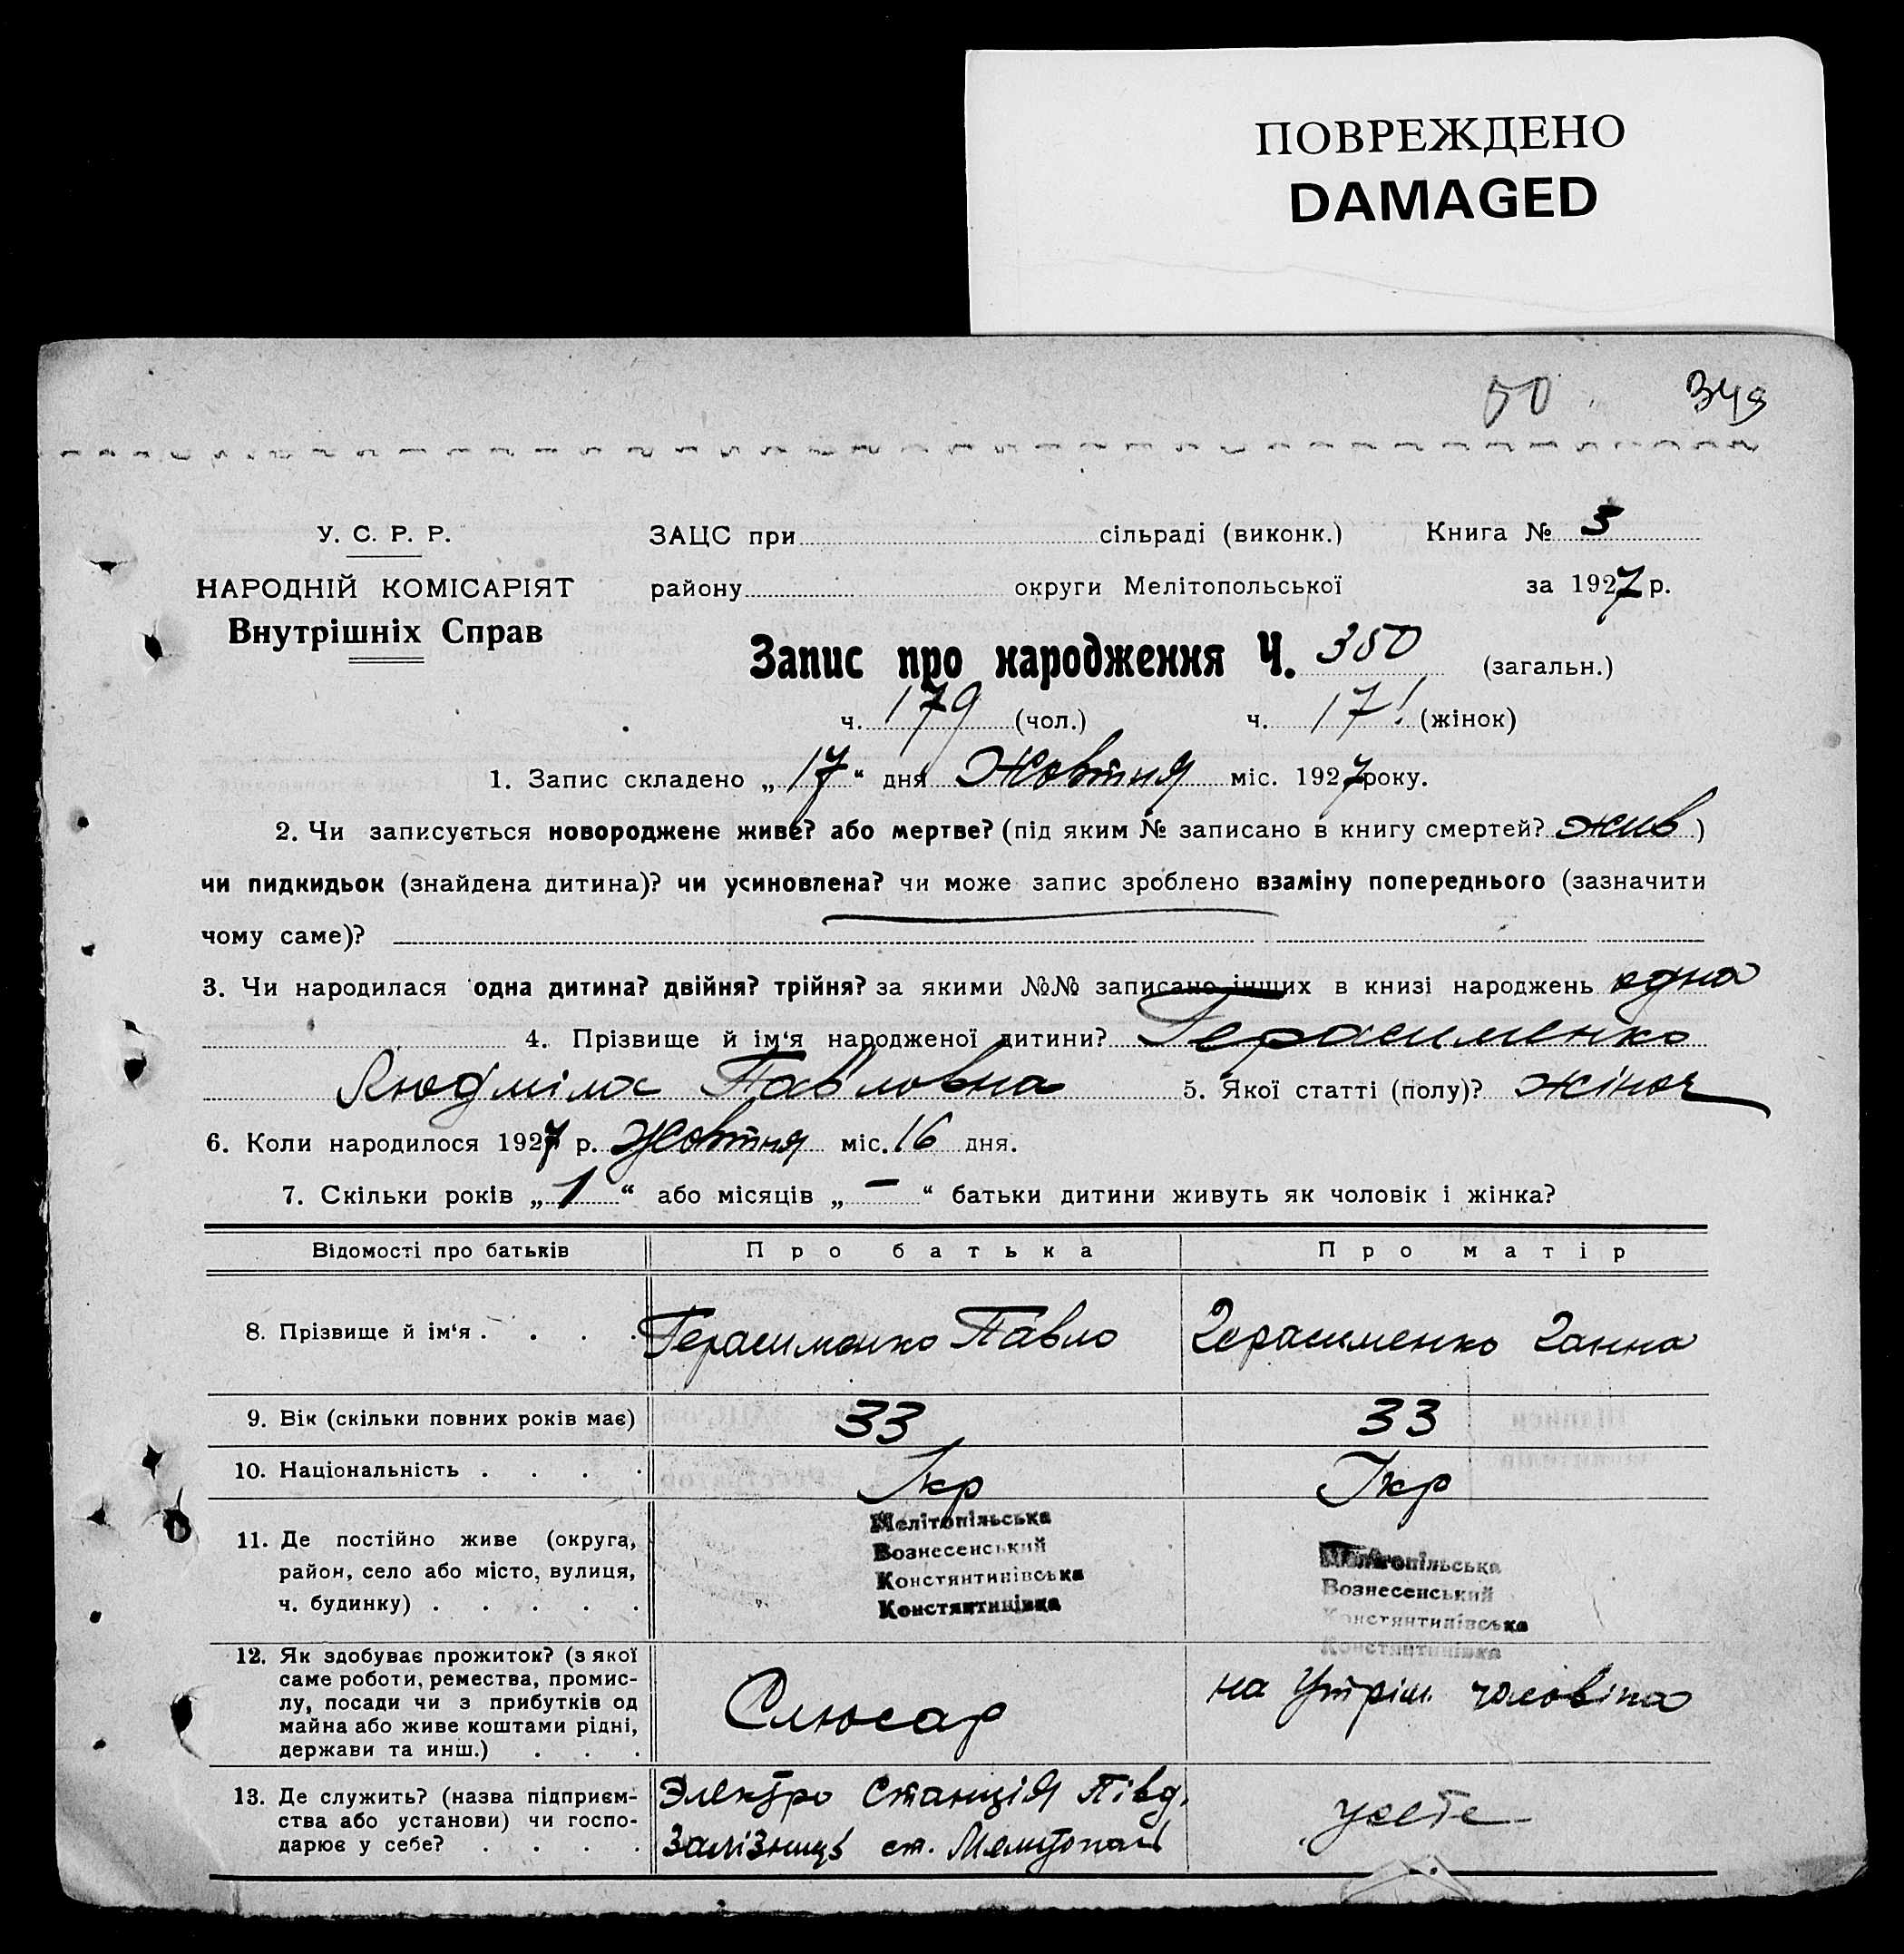 ПОВРЕЖДЕНО
DAMAGED
50 349
У. С. Р. Р. ЗАЦС при сільраді (виконк.) Книга № 3
НАРОДНІЙ КОМІСАРІЯТ району округи Мелітопольської за 1927 р.
Внутрішніх Справ
Запис про народження Ч. 350 (загальн.)
ч. 179 (чол.) ч. 171 (жінок)
1. Запис складено „ 17 “ дня Жовтня міс. 1927 року.
2. Чи записується новороджене живе? або мертве? (під яким № записано в книгу смертей? жив )
чи пидкидьок (знайдена дитина)? чи усиновлена? чи може запис зроблено взаміну попереднього (зазначити
чому саме)?
3. Чи народилася одна дитина? двійня? трійня? за якими №№ записано інших в книзі народжень одна
4. Прізвище й ім‘я народженої дитини? Герасименко
Людміла Павловна 5. Якої статті (полу)? жіноч
6. Коли народилося 1927 р. Жовтня міс. 16 дня.
7. Скільки років „ 1 “ або місяців „ – “ батьки дитини живуть як чоловік і жінка?
Відомості про батьків Про батька Про матір
8. Прізвище й ім‘я . . . . Герасименко Павло Герасименко Ганна
9. Вік (скільки повних років має) 33 33
10. Національність . . . . Укр Укр
11. Де постійно живе (округа,
район, село або місто, вулиця,
ч. будинку) . . . . .
Мелітопільська
Вознесенський
Констянтинівська
Констянтинівка
Мелітопільська
Вознесенський
Констянтинівська
Констянтинівка
12. Як здобуває прожиток? (з якої
саме роботи, ремества, промис-
лу, посади чи з прибутків од
майна або живе коштами рідні,
держави та инш.) . . .
Слюсар
на Утрім. чоловіка
13. Де служить? (назва підприєм-
ства або установи) чи госпо-
дарює у себе? . . . .
Электро Станція Півд.
Залізниці ст. Мелитополь